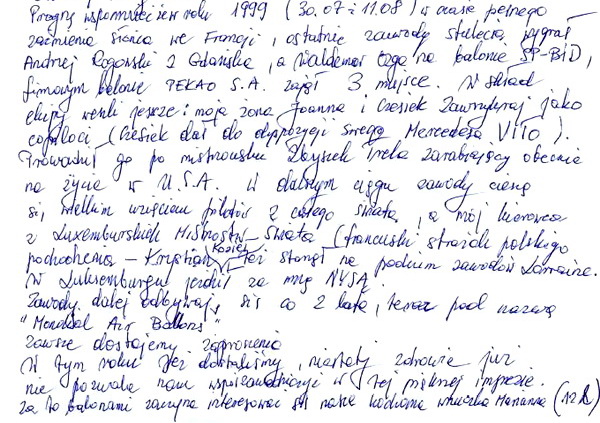 Pragnę wspomnieć iż w roku 1999 (30.07 i 11.08) w czasie pełnego
zaćmienia słońca we Francji, ostatnie zawody stulecia wygrał
Andrzej Rogowski z Gdańska, a Waldemar Ozga na balonie SP-BID,
firmowym balonie PEKAO S.A. zajął 3 miejsce. W skład
ekipy weszli jeszcze: moja żona Joanna i Czesiek Zawrzykraj jako
copiloci (Czesiek dał do dyspozycji swego Mercedesa VITO).
Prowadził go po mistrzowsku Zbyszek Treba zarabiający obecnie
na życie w U.S.A. W dalszym ciągu zawody cieszą
się wielkim wzięciem pilotów z całego świata, a mój kierowca
z Luxemburskich Mistrzostw Świata (francuski strażak polskiego
pochodzenia - Krystian Kozieł też stanął na podium zawodów Lorraine.
W Luksemburgu jeździł za mną NYSĄ.
Zawody dalej odbywają się co 2 lata, teraz pod nazwą
"Mondial Air Ballons"
zawsze dostajemy zaproszenia
W tym roku też dostaliśmy, niestety zdrowie już
nie pozwala nam współzawodniczyć w tej pięknej imprezie.
Za to balonami zaczyna interesować się nasza kochana wnuczka Marianna (12 l)